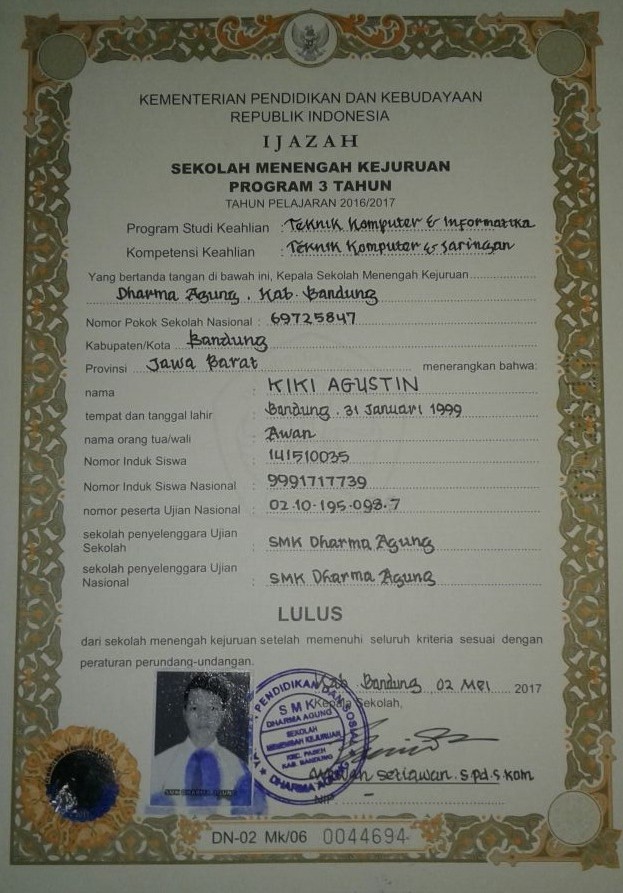 KEMENTERIAN PENDIDIKAN DAN KEBUDAYAAN
REPUBLIK INDONESIA
IJAZAH
SEKOLAH MENENGAH KEJURUAN
PROGRAM 3 TAHUN
TAHUN PELAJARAN 2016/2017
Program Studi Keahlian : Teknik Komputer & Informatika
Kompetensi Keahlian : Teknik Komputer & Jaringan
Yang bertanda tangan di bawah ini, Kepala Sekolah Menengah Kejuruan
Dharma Agung. Kab. Bandung
Nomor Pokok Sekolah Nasional : 69725847
Kabupaten/Kota Bandung
Provinsi Jawa Barat menerangkan bahwa:
nama : KIKI AGUSTIN
tempat dan tanggal lahir : Bandung. 31 Januari 1999
nama orang tua/wali : Awan
Nomor Induk Siswa : 141510035
Nomor Induk Siswa Nasional : 9991717739
nomor peserta Ujian Nasional : 02-10-195-093-7
sekolah penyelenggara Ujian
Sekolah : SMK Dharma Agung
sekolah penyelenggara Ujian
Nasional : SMK Dharma Agung
LULUS
dari sekolah menengah kejuruan setelah memenuhi seluruh kriteria sesuai dengan
peraturan perundang-undangan.
Kab Bandung, 02 Mei 2017
Kepala Sekolah,
PENDIDIKAN DAN SOSIAL
SMK
DHARMA AGUNG
SEKOLAH
MENENGAH KEJURUAN
KEC. PASEH
KAB. BANDUNG
DHARMA AGUNG
Setiawan. S.pd. S.kom
NIP. -
SMK DHARMA AGUNG
DN-02 Mk/06 0044694